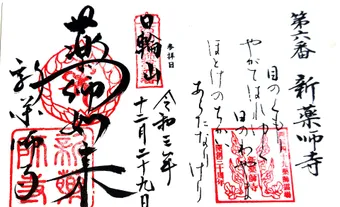 第六番 新薬師寺
目のくも
やがてはれゆく
日のわやま
ほとけのちかい
あらたなりけり
参拝日
令和三年
十二月二十九日
日輪山
薬師如来
新薬師寺